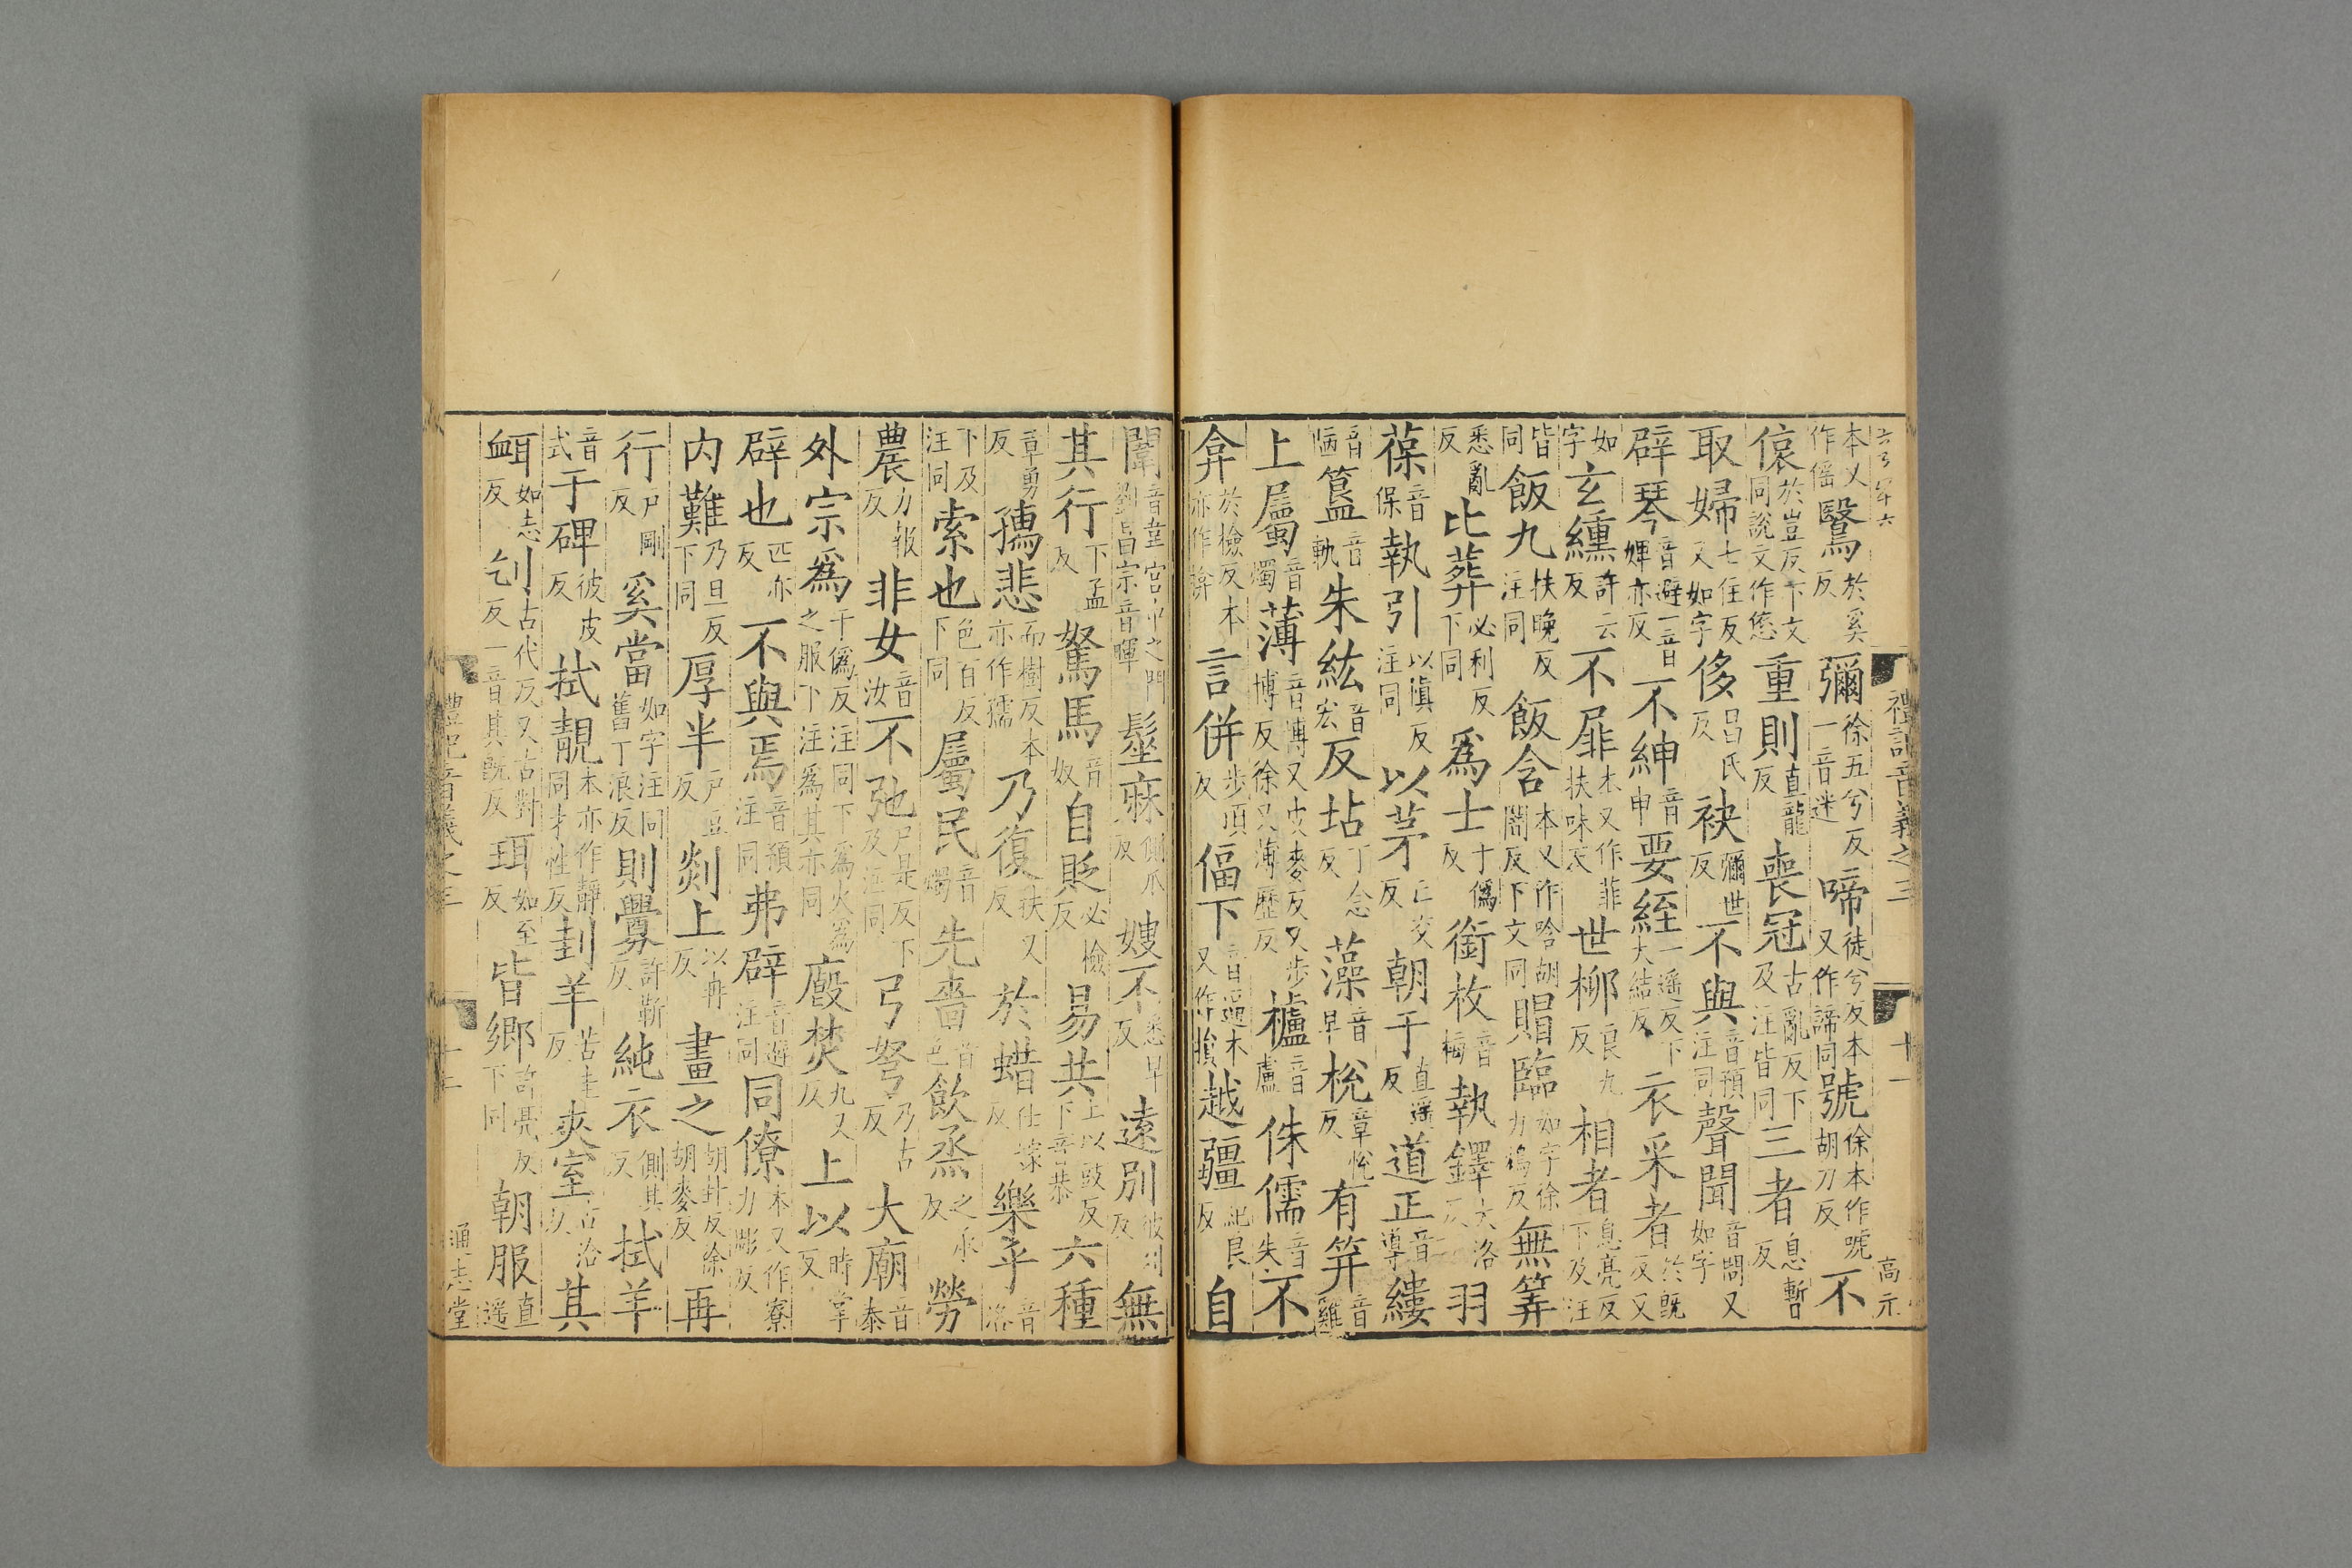 禮記音義之三 十一 高元
本又作傜鷖於奚反彌徐五兮反一音迷啼徒兮反本又作諦同號徐本作唬胡刀反不
偯於豈反下文同說文作㥋重則直龍反喪冠古亂反下及注皆同三者息暫反
取婦七住反又如字侈昌氏反袂彌世反不與音預注同聲聞音問又如字
辟琴音避一音婢亦反不紳音申要絰一遥反下大結反衣采者於既反又
如字玄纁許云反不扉本又作菲扶味反世柳良九反相者息亮反下及注
皆同飯九扶晚反注同飯含本又作唅胡闇反下文同賵臨如字徐力鴆反無筭
悉亂反比葬必利反下同爲士于僞反銜枚音梅執鐸大洛反羽
葆音保執引以愼反注同以茅亡交反朝于直遥反道正音導縷
音陋簋音軌朱紘音宏反坫丁念反藻音早梲章悅反有筓音雞
上屬音燭薄音博又皮麥反又步博反徐又薄歷反櫨音盧侏儒音朱不
弇於檢反本亦作揜言併步頂反偪下音逼本又作損越疆紀良反自
闈音韋宮中之門劉昌宗音暉髽麻側爪反嫂不悉早反遠別彼列反無
其行下孟反駑馬音奴自貶必檢反易共上以豉反下音恭六種
章勇反孺悲而樹反本亦作孺乃復扶又反於蜡仕嫁反樂乎音洛
下及注同索也色百反下同屬民音燭先嗇音色飲烝之承反勞
農力報反非女音汝不弛尸是反下及注同弓弩乃古反大廟音泰
外宗爲于僞反注同下爲火爲之服下注爲其亦同廄焚九又反上以時掌反
辟也匹亦反不與焉音預注同弗辟音避注同同僚本又作寮力彫反
内難乃旦反下同厚半戶豆反剡上以冉反畫之胡卦反徐胡麥反再
行戶剛反奚當如字注同舊丁浪反則釁許靳反純衣側其反拭羊
音式于碑彼皮反拭靚本亦作靜同才性反刲羊苦圭反夾室古洽反其
衈如志反刉古代反又古對反一音其既反珥如至反皆鄉許亮反下同朝服直遥
禮記音義之三 十二 通志堂